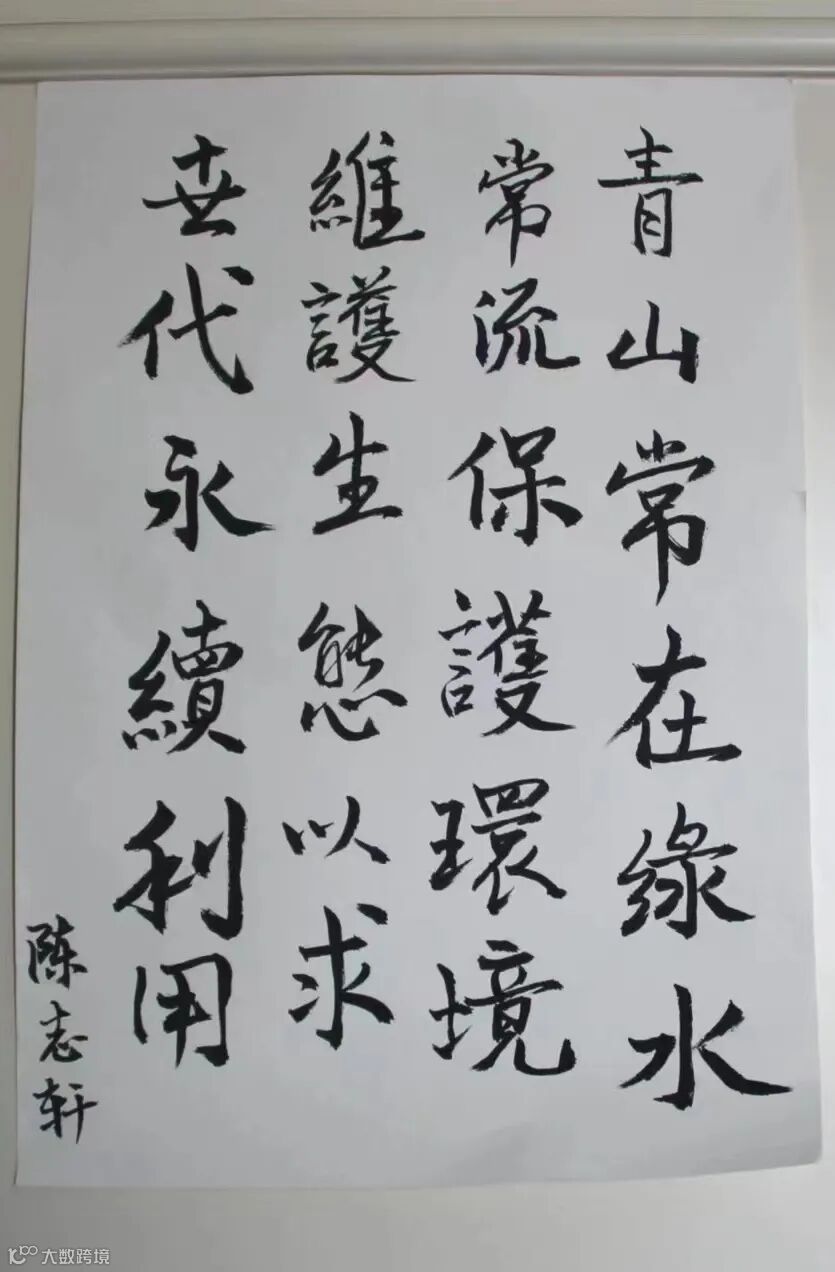 青山常在緣水
常流保護環境
維護生態以求
世代永續利用
陈志轩
大数跨境